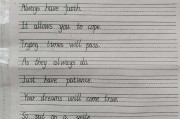 Always have faith.
It allows you to cope.
Trying times will pass.
As they always do.
Just have patience.
Your dreams will come true.
So put on a smile